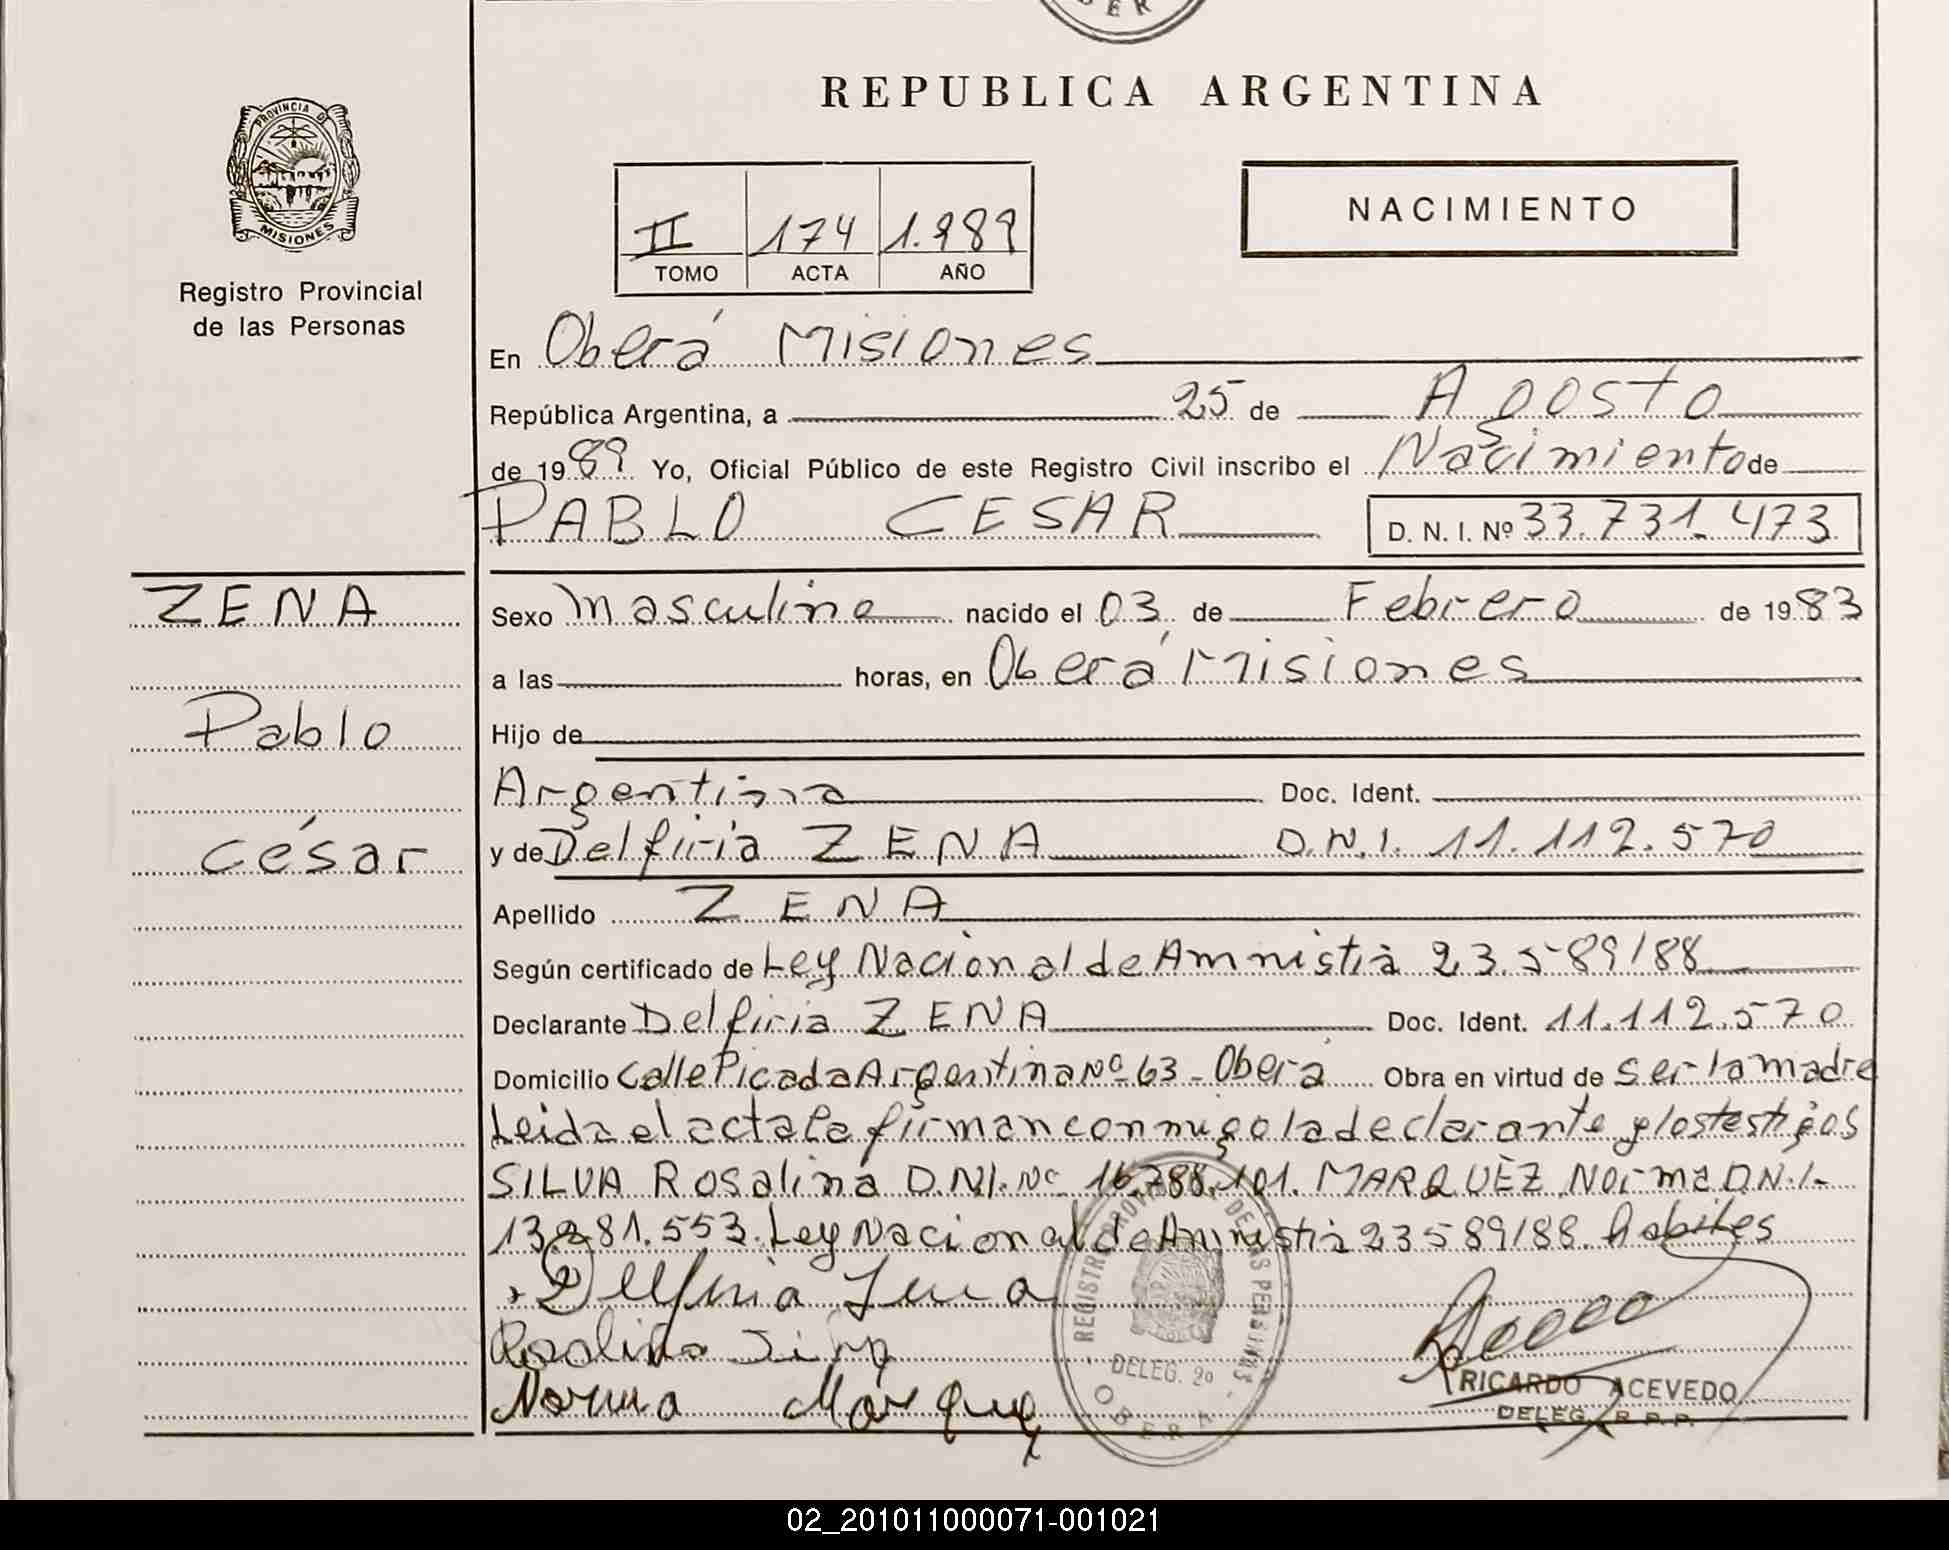 BER
REPUBLICA ARGENTINA
PROVINCIA DE
MISIONES
Registro Provincial
de las Personas
II 174 1.989
TOMO ACTA AÑO
NACIMIENTO
En Oberá Misiones
República Argentina, a 25 de Agosto
de 1989 Yo, Oficial Público de este Registro Civil inscribo el Nacimiento de
PABLO CESAR D. N. I. Nº 33.731.473
ZENA
Pablo
César
Sexo Masculino nacido el 03 de Febrero de 1983
a las horas, en Oberá Misiones
Hijo de
Argentina Doc. Ident.
y de Delfiria ZENA D.N.I. 11.112.570
Apellido ZENA
Según certificado de Ley Nacional de Amnistia 23.589/88
Declarante Delfiria ZENA Doc. Ident. 11.112.570
Domicilio Calle Picada Argentina Nº 63 - Oberá Obra en virtud de ser la madre
Leida el acta la firman conmigo la declarante y los testigos
SILVA Rosalina D.N.I. Nº 16.788.101. MARQUÈZ Norma D.N.I.
13.281.553. Ley Nacional de Amnistia 23589/88. habiles
Delfiria Zena
Rosalina Silva
Norma Marquez
REGISTRO PROV. DE LAS PERSONAS
DELEG. 2º
OBERA
RICARDO ACEVEDO
DELEG. R. P. P.
02_201011000071-001021